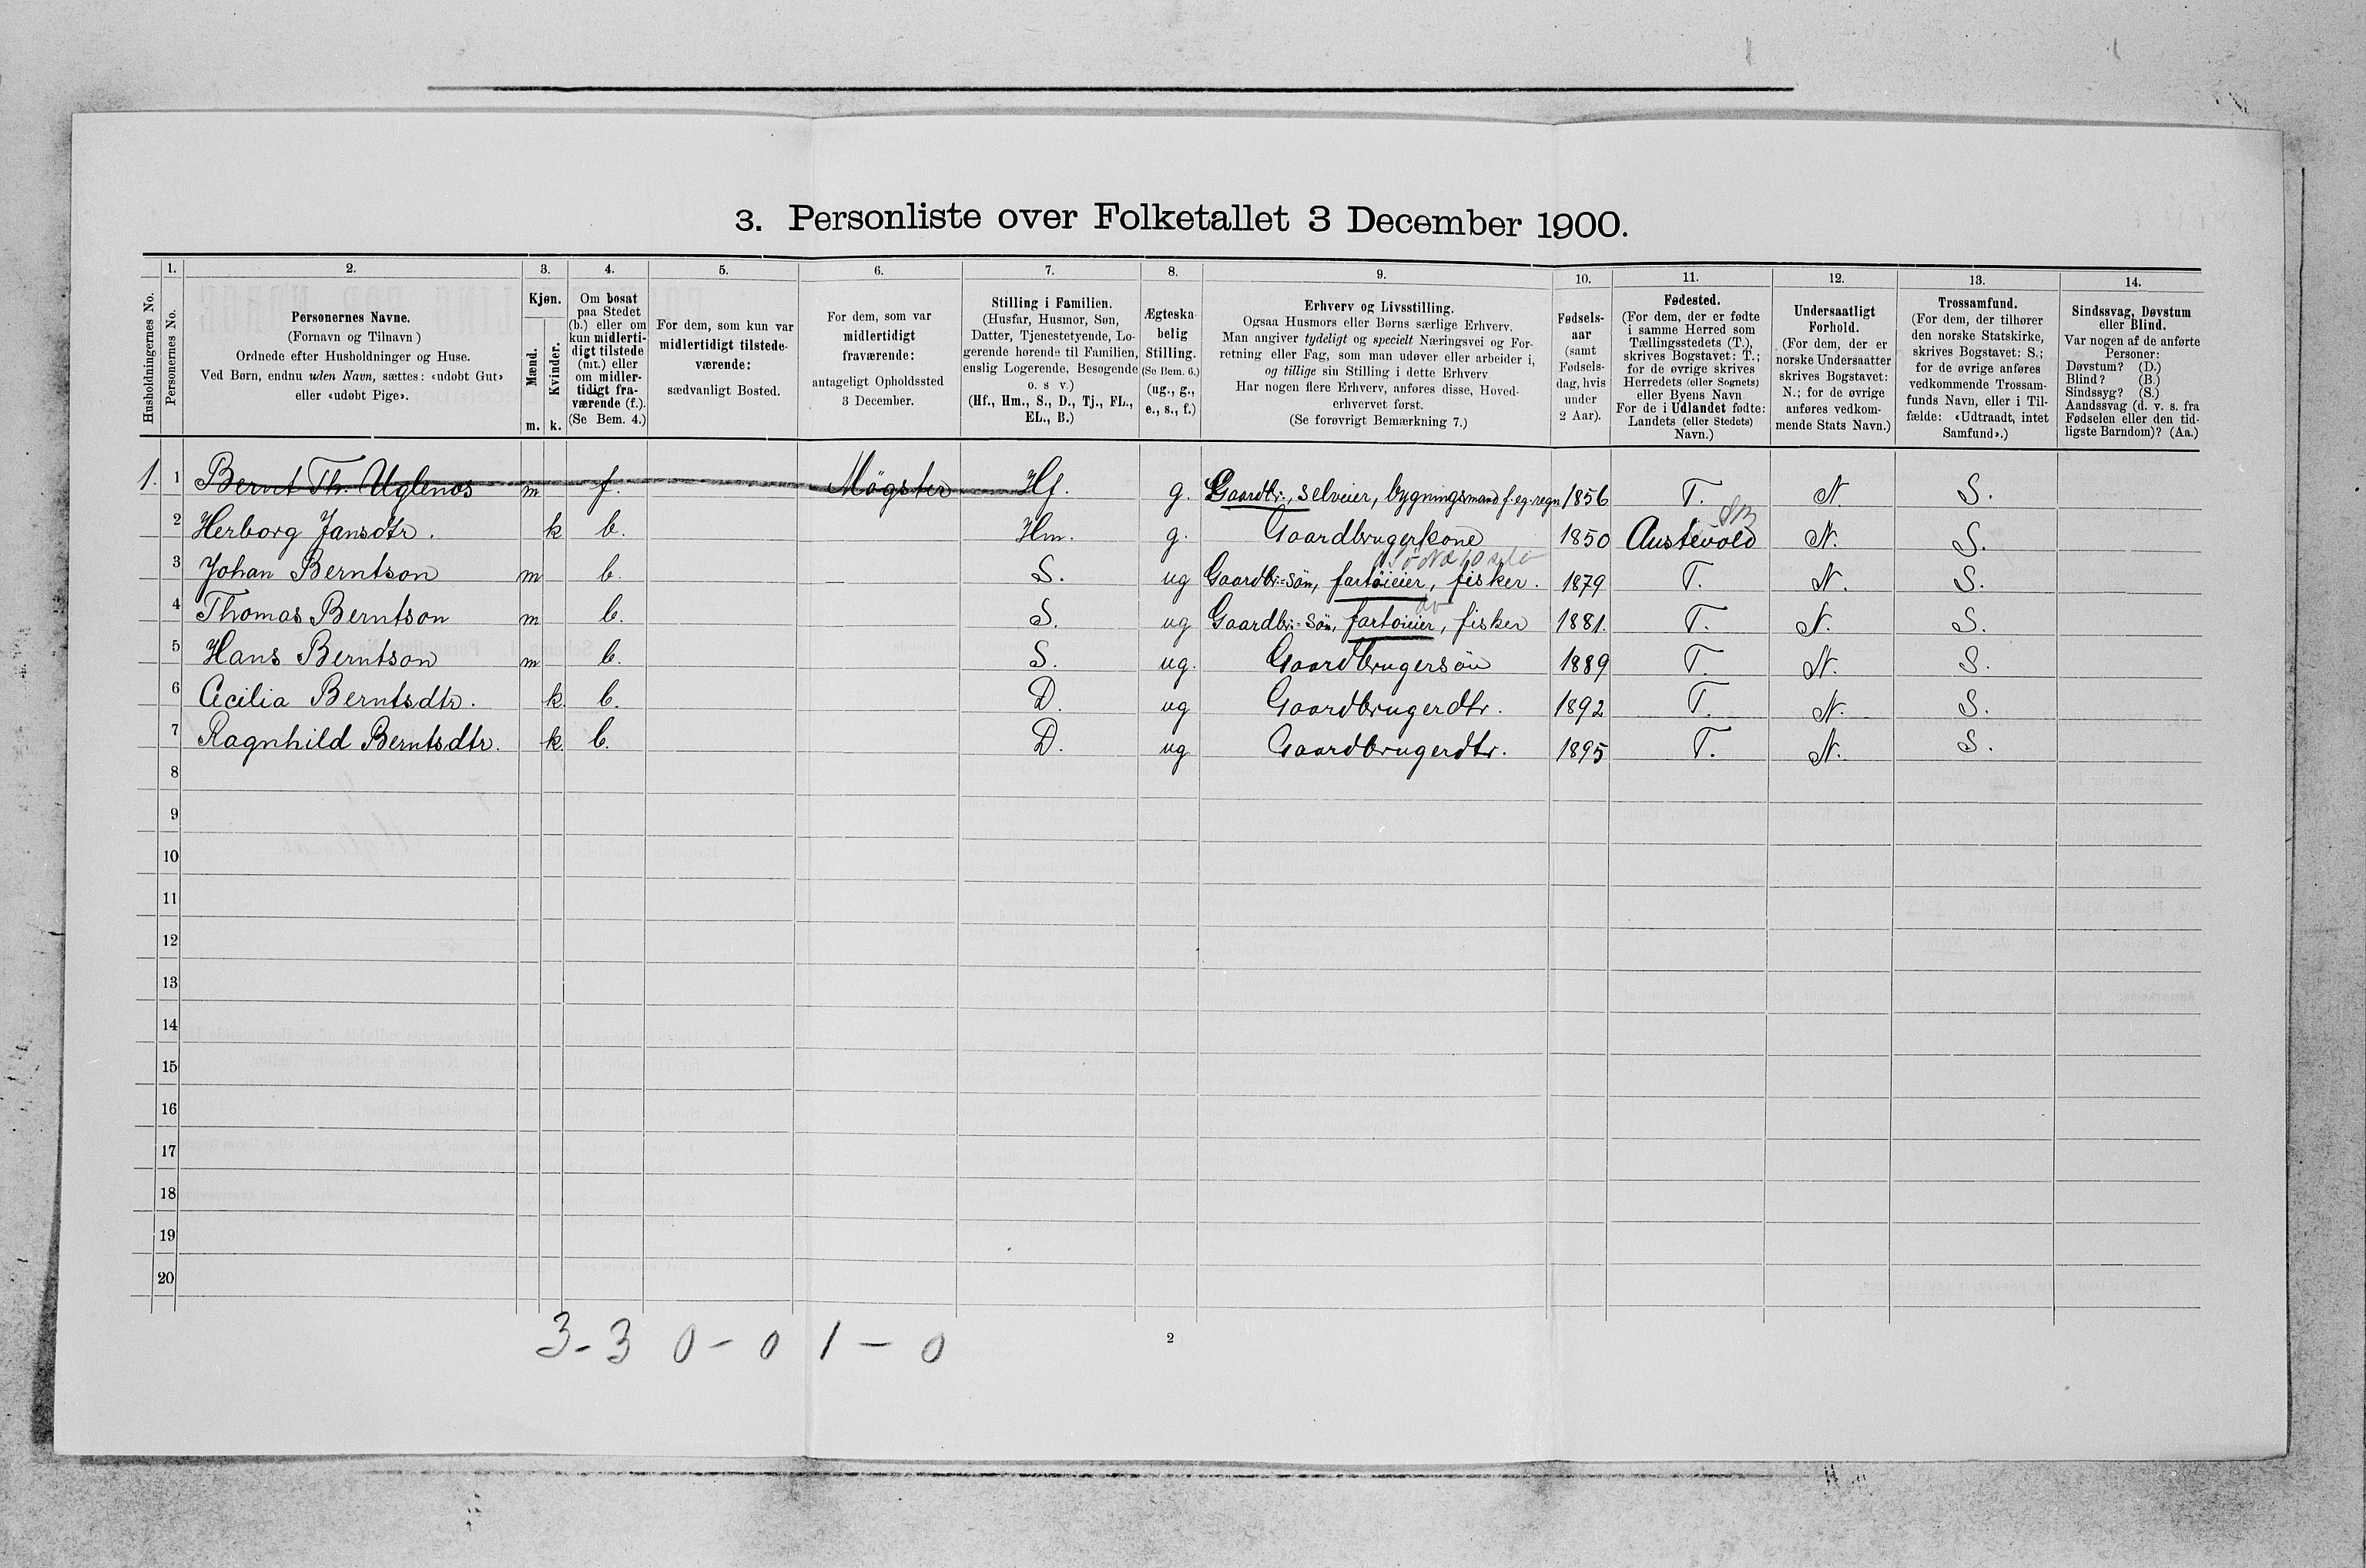 3. Personliste over Folketallet 3 December 1900.
1. 2. 3. 4. 5. 6. 7. 8. 9. 10. 11. 12. 13. 14.
Husholdningernes No.
Personernes No.
Personernes Navne.
(Fornavn og Tilnavn)
Ordnede efter Husholdninger og Huse.
Ved Børn, endnu uden Navn, sættes: «udøbt Gut»
eller «udøbt Pige».
Kjøn.
Mænd.
Kvinder.
m. k.
Om bosat
paa Stedet
(b.) eller om
kun midlerti-
digt tilstede
(mt.) eller
om midler-
tidigt fra-
værende (f.).
(Se Bem. 4.)
For dem, som kun var
midlertidigt tilstede-
værende:
sædvanligt Bosted.
For dem, som var
midlertidigt
fraværende:
antageligt Opholdssted
3 December.
Stilling i Familien.
(Husfar, Husmor, Søn,
Datter, Tjenestetyende, Lo-
gerende hørende til Familien,
enslig Logerende, Besøgende
o. s v.)
(Hf., Hm., S., D., Tj., FL.,
EL., B.)
Ægteska-
belig
Stilling.
(Se Bem. 6.)
(ug., g.,
e., s., f.)
Erhverv og Livsstilling.
Ogsaa Husmors eller Børns særlige Erhverv.
Man angiver tydeligt og specielt Næringsvei og For-
retning eller Fag, som man udøver eller arbeider i,
og tillige sin Stilling i dette Erhverv
Har nogen flere Erhverv, anføres disse, Hoved-
erhvervet først.
(Se forøvrigt Bemærkning 7.)
Fødsels-
aar
(samt
Fødsels-
dag, hvis
under
2 Aar).
Fødested.
(For dem, der er fødte
i samme Herred som
Tællingsstedets (T.),
skrives Bogstavet: T.;
for de øvrige skrives
Herredets (eller Sognets)
eller Byens Navn
For de i Udlandet fødte:
Landets (eller Stedets)
Navn.)
Undersaatligt
Forhold.
(For dem, der er
norske Undersaatter
skrives Bogstavet:
N.; for de øvrige
anføres vedkom-
mende Stats Navn.)
Trossamfund.
(For dem, der tilhører
den norske Statskirke,
skrives Bogstavet: S.;
for de øvrige anføres
vedkommende Trossam-
funds Navn, eller i Til-
fælde: «Udtraadt, intet
Samfund».)
Sindssvag, Døvstum
eller Blind.
Var nogen af de anførte
Personer:
Døvstum? (D.)
Blind? (B.)
Sindssyg? (S.)
Aandssvag (d. v. s. fra
Fødselen eller den tid-
ligste Barndom)? (Aa.)
1. 1 Bernt Th. Uglenos m f. Mögster Hf. g. Gaardbr., selveier, bygningsmand f. eg. regn 1856 T. N. S.
2 Herborg Jansdtr. k b. Hm. g. Gaardbrugerkone 1850 Austevold N. S.
3 Johan Berntson m b. S. ug Gaardbr.-sön, fartöieier, fisker. 1879 T. N. S.
4 Thomas Berntson m b. S. ug Gaardbr.-sön, fartöieier, fisker 1881. T. N. S.
5 Hans Berntson m b. S. ug. Gaardbrugersön 1889 T. N. S.
6 Cecilia Berntsdtr. k. b. D. ug Gaardbrugerdtr. 1892 T. N. S.
7 Ragnhild Berntsdtr. k. b. D. ug Gaardbrugerdtr. 1895 T. N. S.
8
9
10
11
12
13
14
15
16
17
18
19
20
3-3 0-0 1-0
2